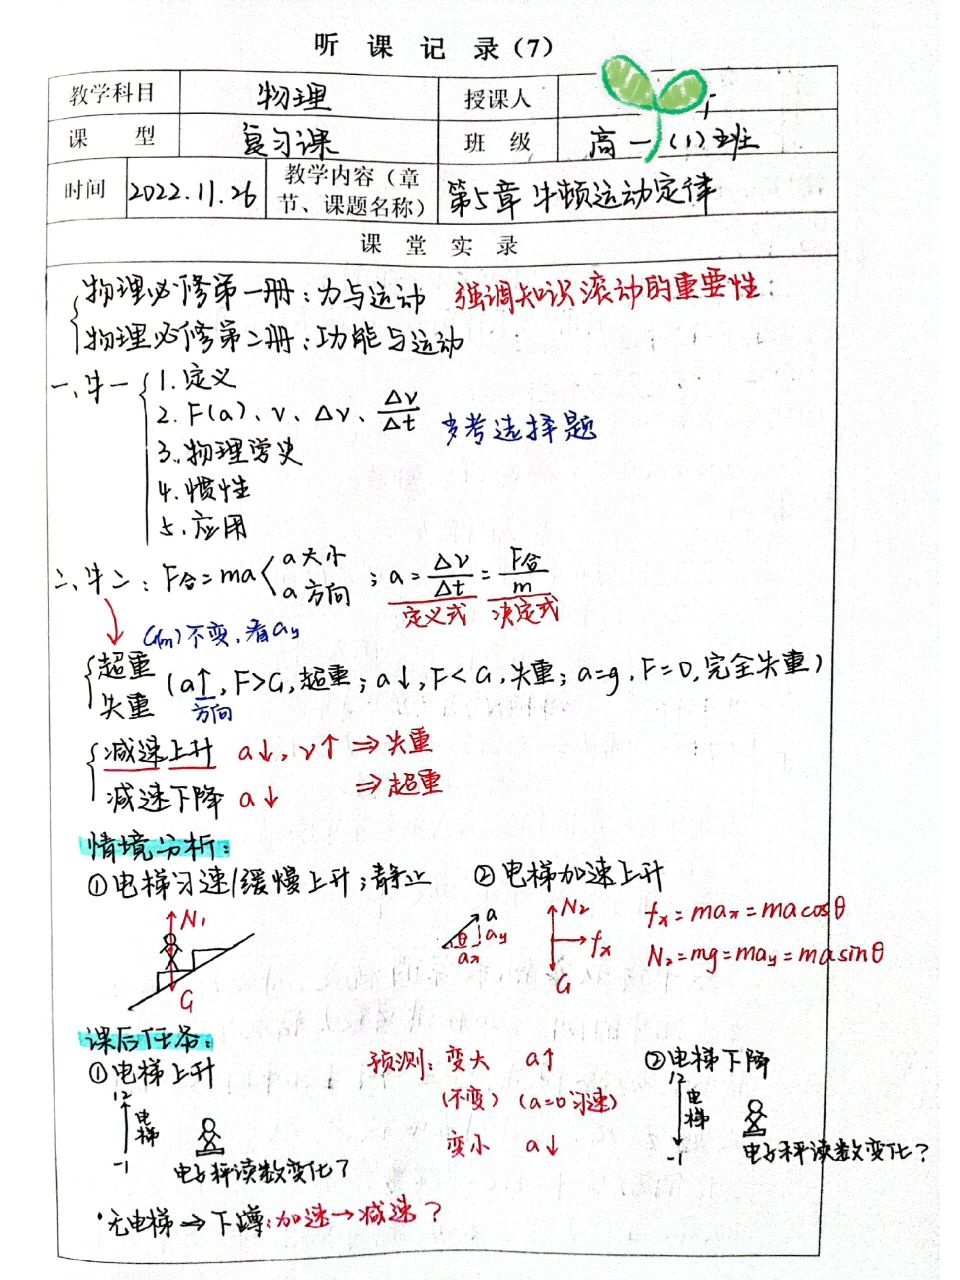 听 课 记 录（7）
教学科目 物理 授课人
课 型 复习课 班 级 高一（1）班
时间 2022.11.26 教学内容（章节、课题名称） 第5章 牛顿运动定律
课 堂 实 录
物理必修第一册：力与运动 强调知识滚动的重要性：
物理必修第二册：功能与运动
一、牛一 1. 定义
2. F(a)、v、Δv、Δv/Δt 多考选择题
3. 物理学史
4. 惯性
5. 应用
二、牛二：F合=ma a大小 a方向 ；a=Δv/Δt=F合/m
定义式 决定式
G(m)不变，看ay
超重
失重
(a↑，F>G，超重；a↓，F<G，失重；a=g，F=0，完全失重)
方向
减速上升 a↓，v↑ ⇒ 失重
减速下降 a↓ ⇒ 超重
情境分析：
①电梯匀速/缓慢上升；静止 ②电梯加速上升
N1
G
a
θ
ay
ax
N2
fx
G
fx=max=macosθ
N2=mg=may=masinθ
课后任务：
①电梯上升 预测：变大 a↑ ②电梯下降
(不变) (a=0匀速)
变小 a↓
12
电梯
-1
电子秤读数变化？
12
电梯
-1
电子秤读数变化？
·无电梯→下蹲：加速→减速？